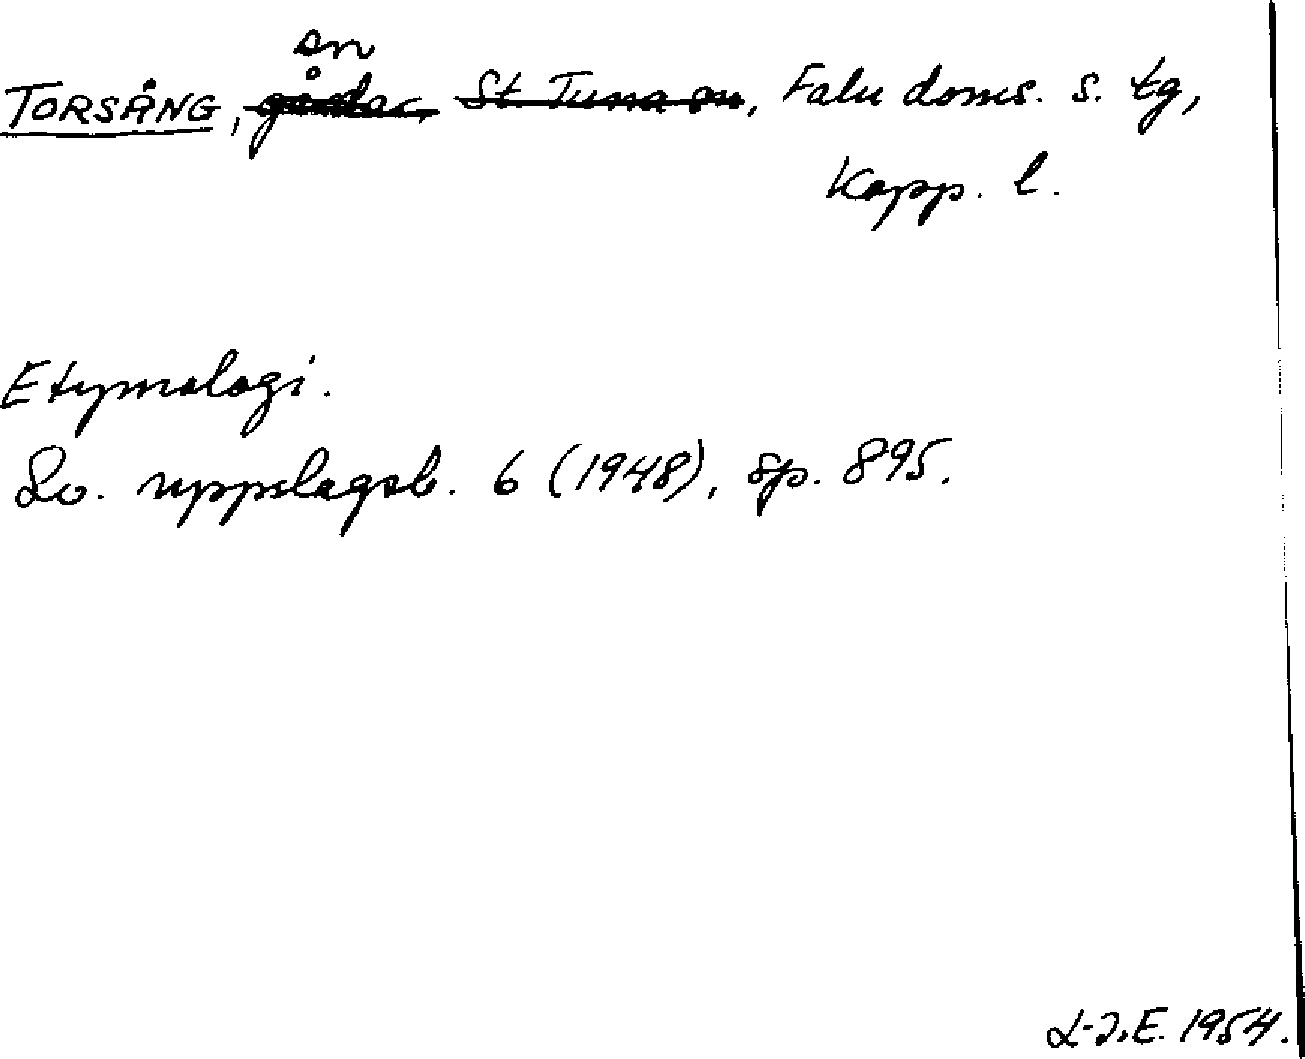 sn
TORSÅNG, gårdar, St. Tuna sn, Falu doms. s. tg,
Kopp. l.
Etymologi.
Sv. uppslagsb. 6 (1948), sp. 895.
L-I.E. 1954.